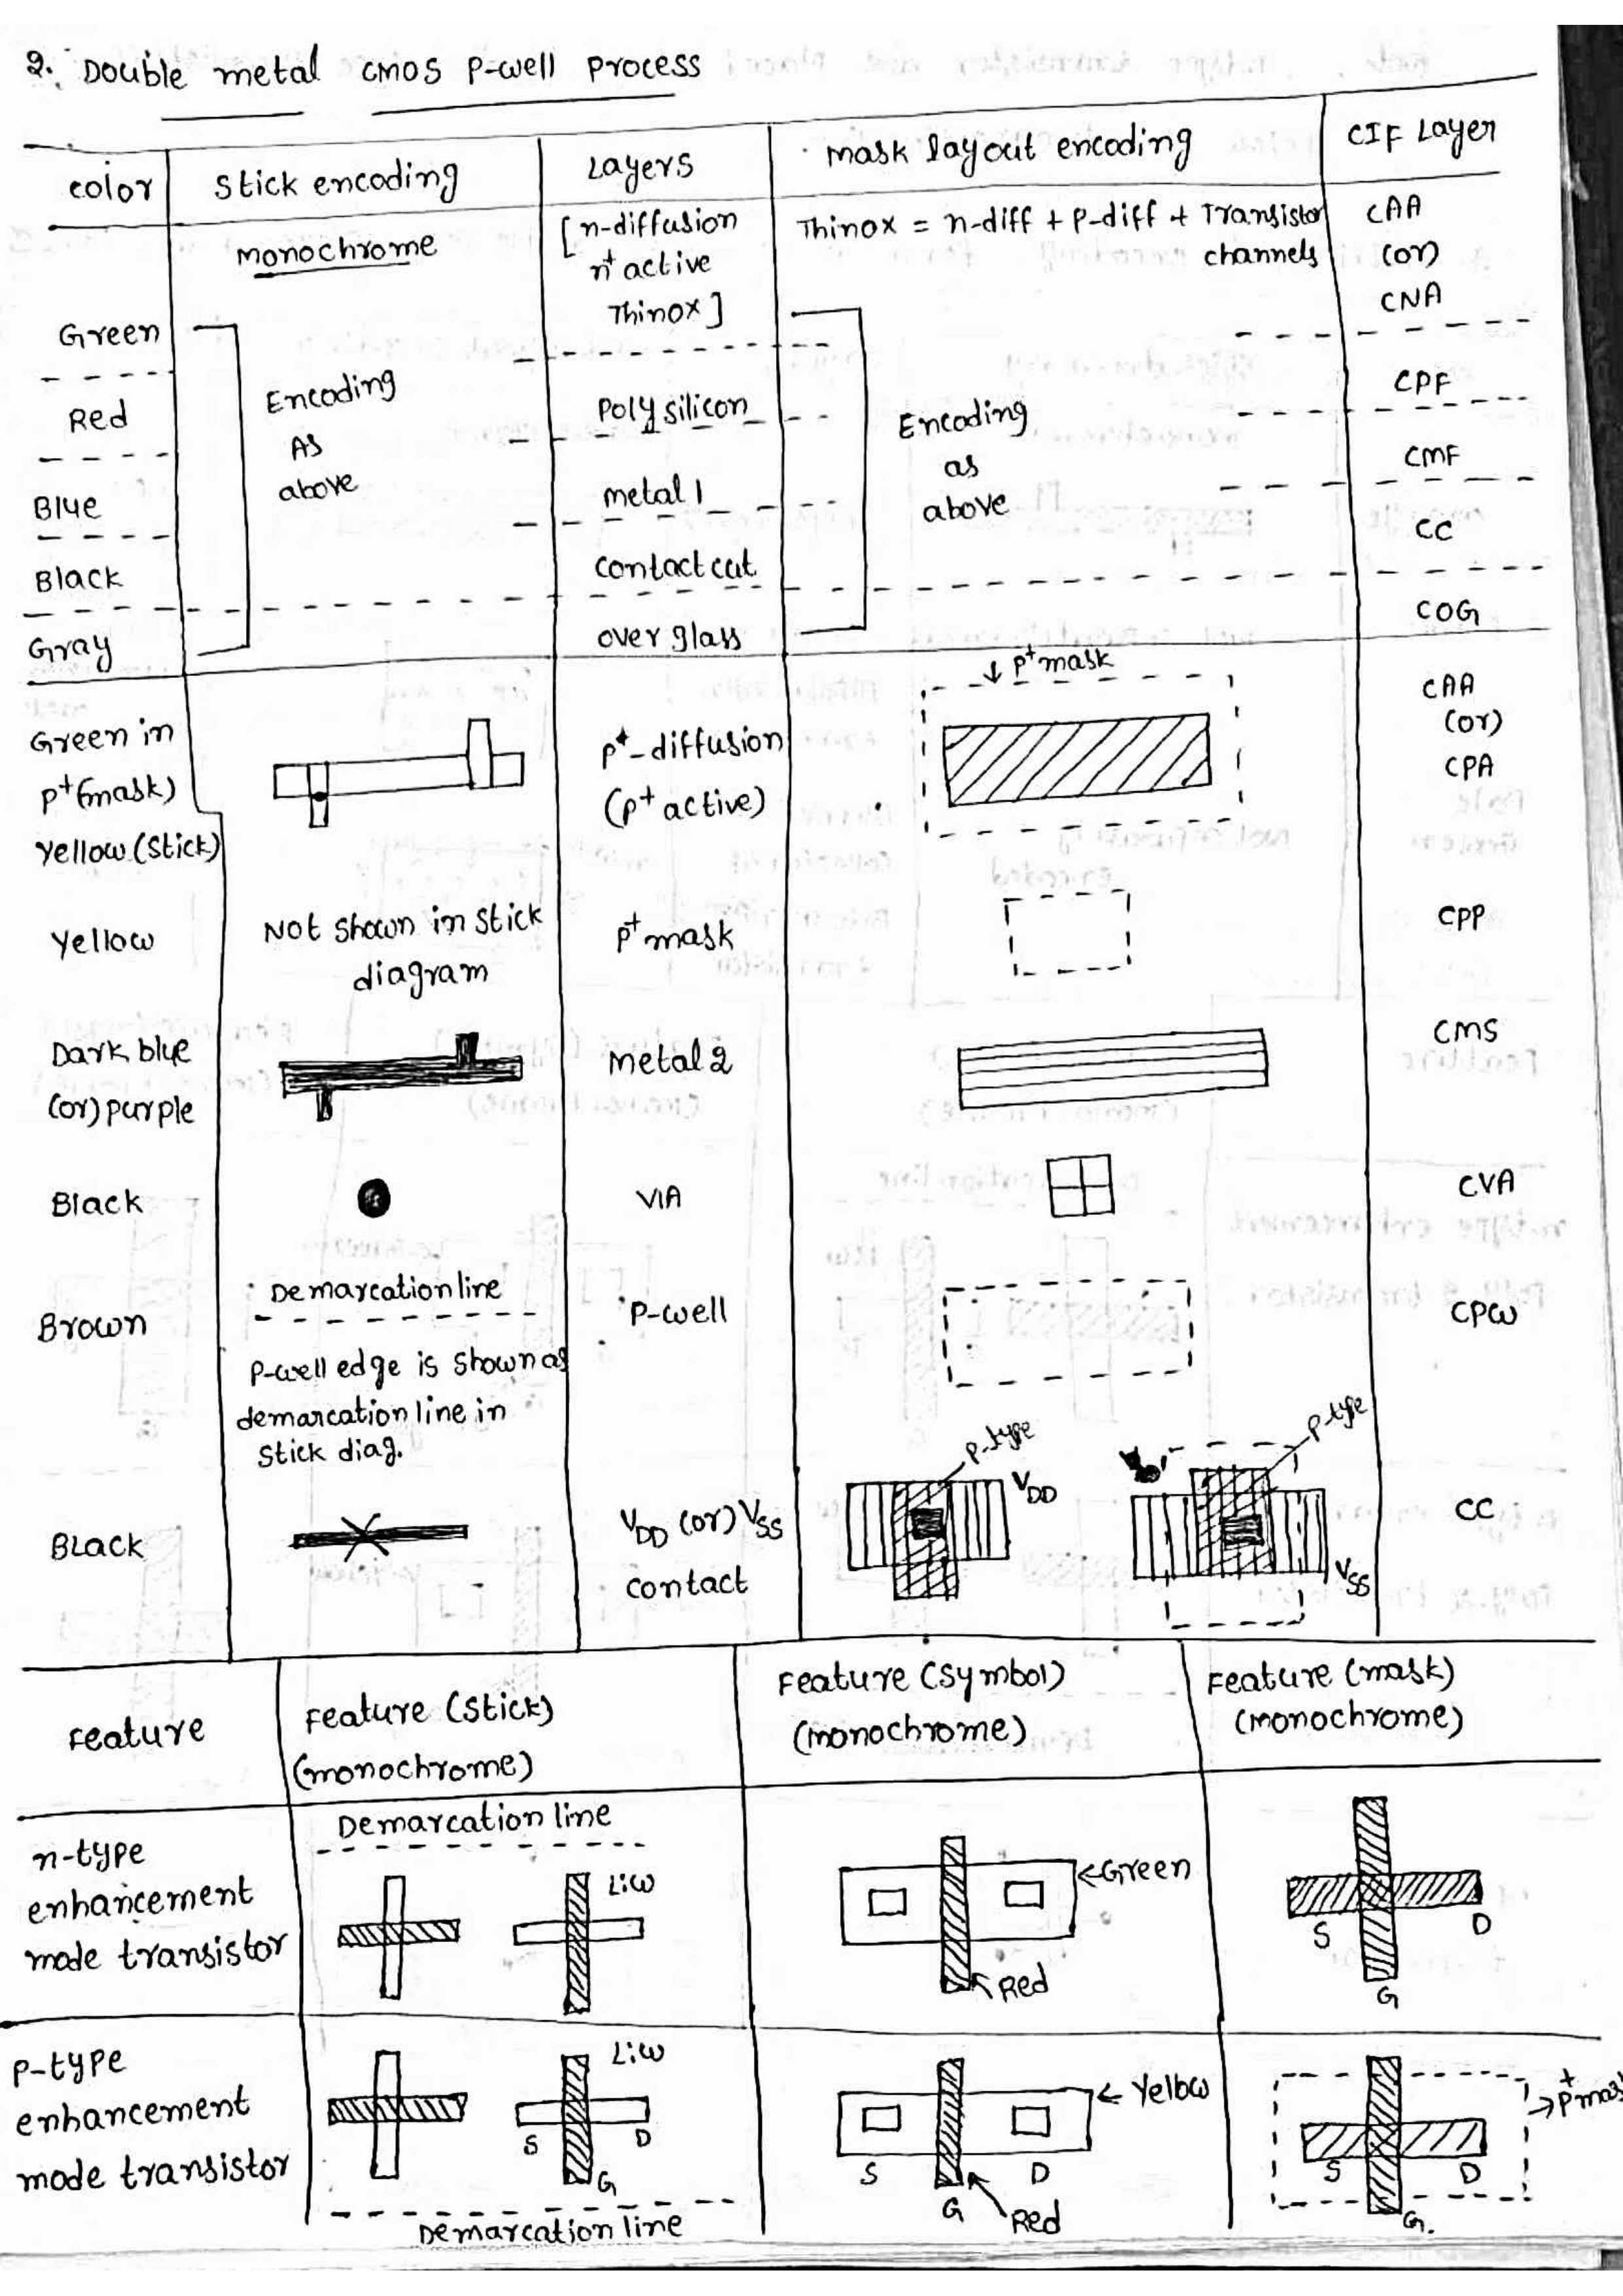 2. Double metal CMOS P-well process
color
Stick encoding
Layers
mask layout encoding
CIF Layer
monochrome
[n-diffusion
n+ active
Thinox]
Thinox = n-diff + p-diff + Transistor
channels
CAA
(or)
CNA
Green
Encoding
As
above
Encoding
as
above
Red
Polysilicon
CPF
Blue
metal 1
CMF
Black
contact cut
CC
Gray
over glass
COG
Green in
p+ (mask)
yellow (stick)
p+-diffusion
(p+ active)
p+ mask
CAA
(or)
CPA
Yellow
Not shown in stick
diagram
p+ mask
CPP
Dark blue
(or) purple
Metal 2
CMS
Black
VIA
CVA
Brown
Demarcation line
P-well edge is shown as
demarcation line in
stick diag.
P-well
CPW
Black
VDD (or) VSS
contact
p-type
VDD
p-type
VSS
CC
Feature
Feature (stick)
(monochrome)
Feature (symbol)
(monochrome)
Feature (mask)
(monochrome)
n-type
enhancement
mode transistor
Demarcation line
L:W
Green
Red
S
D
G
P-type
enhancement
mode transistor
L:W
S
D
G
Demarcation line
Yellow
S
D
G
Red
p+ mas
S
D
G.